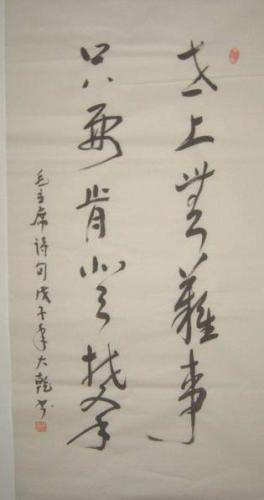 世上無難事
只要肯登攀
毛主席詩句戊子年大乾书